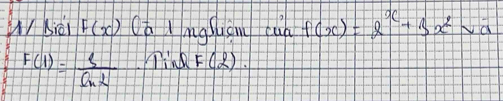 1/ Biết F(x) là 1 nguyên của f(x) = 2^x + 3x² và
F(1) = 3/ln2 . Tính F(2).